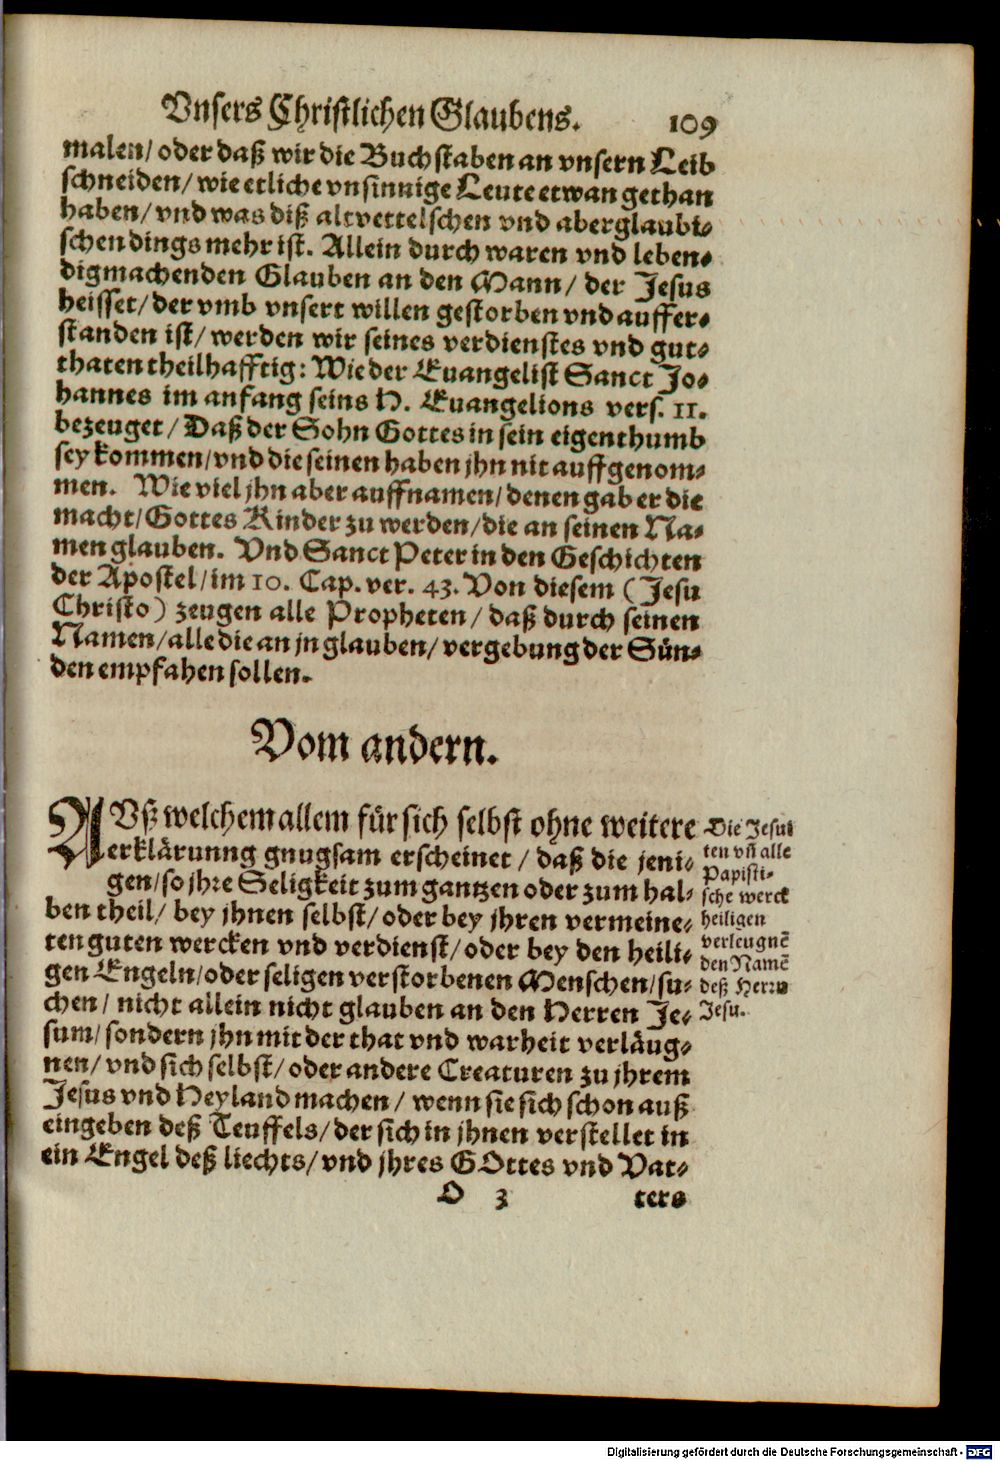 Vnsers Christlichen Glaubens. 109
malen/ oder daß wir die Buchstaben an vnsern Leib
schneiden/ wie etliche vnsinnige Leute etwan gethan
haben/ vnd was diß altvettelschen vnd aberglaubi⸗
schen dings mehr ist. Allein durch waren vnd leben⸗
digmachenden Glauben an den Mann/ der Jesus
heisset/ der vmb vnsert willen gestorben vnd auffer⸗
standen ist/ werden wir seines verdienstes vnd gut⸗
thaten theilhafftig: Wie der Euangelist Sanct Jo⸗
hannes im anfang seins H. Euangelions vers. 11.
bezeuget/ Daß der Sohn Gottes in sein eigenthumb
sey kommen/ vnd die seinen haben jhn nit auffgenom⸗
men. Wie viel jhn aber auffnamen/ denen gab er die
macht/ Gottes Kinder zu werden/ die an seinen Na⸗
men glauben. Vnd Sanct Peter in den Geschichten
der Apostel/ im 10. Cap. ver. 43. Von diesem (Jesu
Christo) zeugen alle Propheten/ daß durch seinen
Namen/ alle die an jn glauben/ vergebung der Sün⸗
den empfahen sollen.
Vom andern.
AVß welchem allem für sich selbst ohne weitere
erklärunng gnugsam erscheinet/ daß die jeni⸗
gen/ so jhre Seligkeit zum gantzen oder zum hal⸗
ben theil/ bey jhnen selbst/ oder bey jhren vermeine⸗
ten guten wercken vnd verdienst/ oder bey den heili⸗
gen Engeln/ oder seligen verstorbenen Menschen/ su⸗
chen/ nicht allein nicht glauben an den Herren Je⸗
sum/ sondern jhn mit der that vnd warheit verläug⸗
nen/ vnd sich selbst/ oder andere Creaturen zu jhrem
Jesus vnd Heyland machen/ wenn sie sich schon auß
eingeben deß Teuffels/ der sich in jhnen verstellet in
ein Engel deß liechts/ vnd jhres GOttes vnd Vat⸗
O 3 ters
Die Jesui
ten vñ alle
Papisti⸗
sche werck
heiligen
verleugnẽ
den Namẽ
deß Herrn
Jesu.
Digitalisierung gefördert durch die Deutsche Forschungsgemeinschaft - DFG